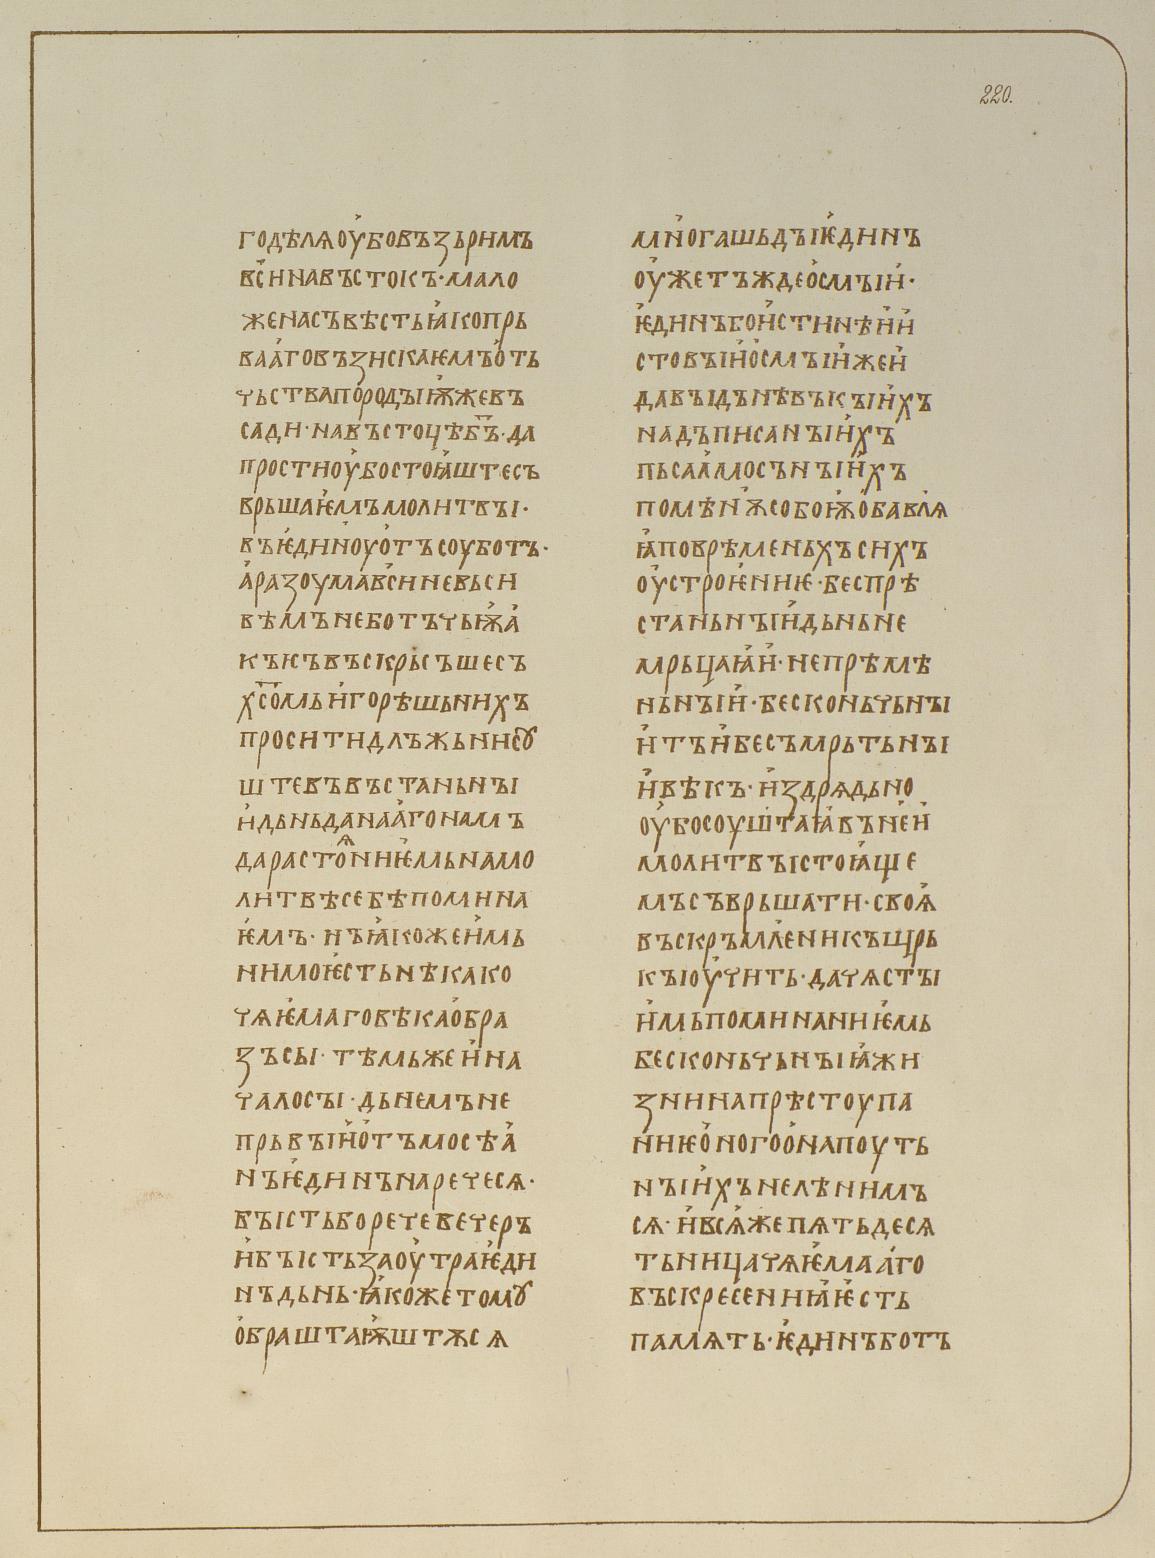 220.
годѣлѧоубовъзьримъ
вс҃инавъстокъ·мало
женасъвѣстьꙗкопрь
вааговъзискаѥмъоть
чьствапородыꙗжевъ
сади·навъстоцѣбъ·да
простиоубостоꙗштесъ
врьшаѥмъмолитвы·
въѥдинѹотъсѹботъ·
аразоумавсиневьси
вѣмънеботъчьѭа
къкъвъскрьсъшесъ
хс҃омьигорѣшьнихъ
проситидлъжьнисꙋ
штевъвъстаньны
идьньданаагонамъ
дарастоѧниѥмьнамо
литвѣсебѣпомина
ѥмъ·нъꙗкожеимь
нимоѥстьнѣкако
чѧѥмаговѣкаобра
зъсы·тѣмьжеина
чалосы·дьнемъне
прьвыиотъмосѣа
нъѥдинънаречесѧ·
быстьборечевечеръ
ибыстьзаоутраѥди
нъдьнь·ꙗкожетомꙋ
обраштаѭштѫсѧ
многашьдыѥдинъ
оужетъждеосмыи·
ѥдинъбоистинѣии
стовыиосмыижеи
давыдънѣвъкыихъ
надъписаныихъ
пьсалмосъныихъ
помѣнѫсобоѭобавлѧ
ꙗповрѣменьхъсихъ
оустроѥниѥ·беспрѣ
станьныидьньне
мрьцаꙗи·непрѣмѣ
ньныи·бесконьчьны
итъибесъмрьтьны
ивѣкъ·издрѧдьно
оубосоуштаꙗвънеи
молитвыстоꙗще
мъсъврьшати·своѧ
въскръмлѥникъцрь
кыоучить·дачѧсты
имьпоминаниѥмь
бесконьчьныꙗжи
знинапрѣстоупа
ниѥоногоонапоуть
ныихънелѣнимъ
сѧ·ивсѧжепѧтьдесѧ
тьницачѧѥмааго
въскресениꙗѥсть
памѧть·ѥдинъботъ